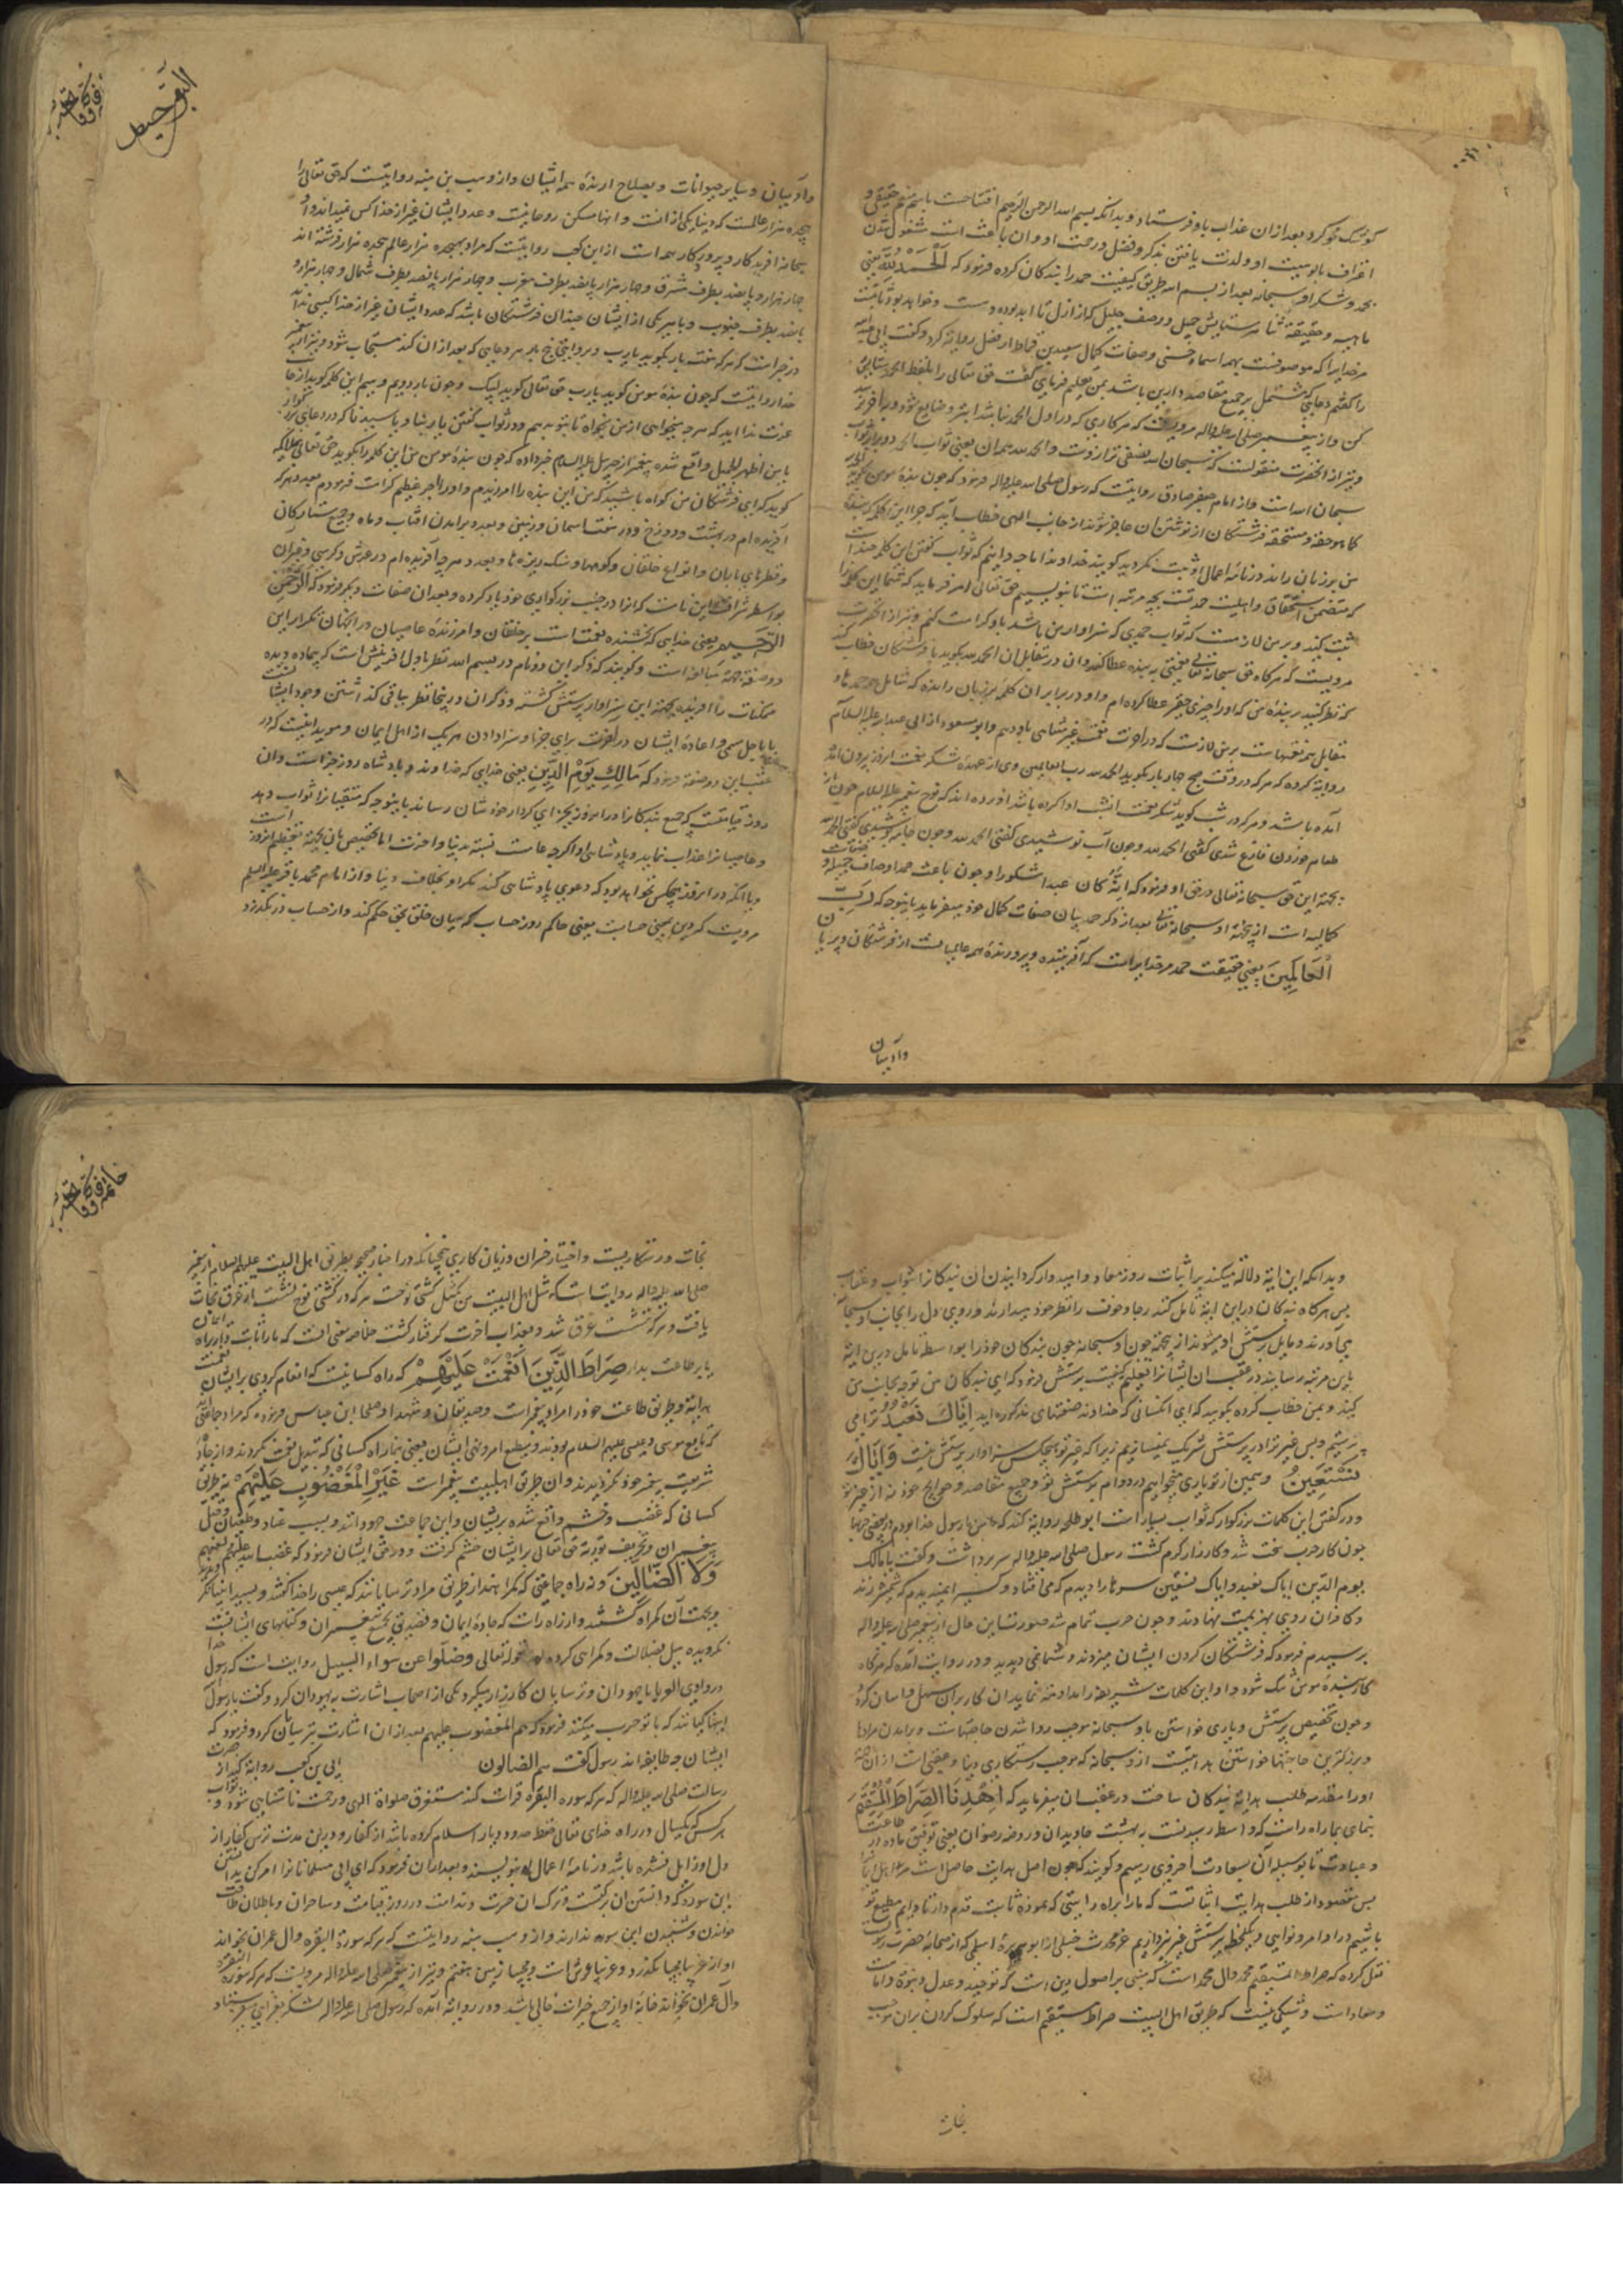 کوشک محو کرد بعد ازان عذاب باو فرستاد و بدانکه بسم الله الرحمن الرحیم افتتاحست باسم منعم حقیقی و
اعتراف بالوهیت او ولذت یافتن بذکر و فضل و رحمت او و ان باعث است مشغول شدن
بحمد و شکر او سبحانه بعد از بسم الله طریق کیفیت حمد را ببندکان کرده فرمود که اَلْحَمْدُ لِلّٰهِ یعنی
ماهیه و حقیقة ثنا و ستایش جمیل و وصف جلیل که از ازل تا ابد بوده و هست و خواهد بود ثابتست
مر خدایرا که موصوفست بهمه اسماء حسنی و صفات کمال
را کفتم دعایی که مشتمل بر جمیع مقاصد دارین باشد بمن تعلیم فرمای کفت حق تعالی را بلفظ الحمد ستایش
کن و از پیغمبر صلی الله علیه واله مرویست که هر کاری که در اول الحمد نباشد ابتر و ضایع شود و به اخر نرسد
و نیز از انحضرت منقولست که سبحان الله نصفی ترازوست و الحمد لله همه ان یعنی ثواب الحمد دو برابر ثواب
سبحان الله است و از امام جعفر صادق روایتست که رسول صلی الله علیه واله فرمود که چون بنده مومن کوید الحمد لله
کما هو حقه و مستحقه فرشتکان از نوشتن ان عاجز شوند از جانب الهی خطاب آید که چرا این کلمه که بنده
من بر زبان راند در نامه اعمال او ثبت نکردید کویند خداوندا ما چه دانیم که ثواب کفتن این کلمه چندانست
که متضمن استحقاق و اهلیت حمد تست بچه مرتبه است تا بنویسیم حق تعالی امر فرماید که شما این کلمه را
ثبت کنید و بر من لازمست که ثواب حمدی که سزاوار من باشد باو کرامت کنم و نیز از انحضرت
مرویست که هرکاه حق سبحانه تعالی نعمتی به بنده عطا کند و ان در مقابل ان الحمد لله بکوید با فرشتکان خطاب کند
که نظر کنید بر بنده من که او را چیزی حقیر عطا کرده ام و او در برابر ان کلمه بر زبان رانده که شامل همه حمدها و
مقابل همه نعمتهاست بر من لازمست که در اخرت نعمت غیر متناهی باو دهم و ابو مسعود از ابی عبد الله علیه السلام
روایة کرده که هر که در وقت صبح چهار بار بکوید الحمد لله رب العالمین وی از عهده شکر نعمت انروز بیرون
آمده باشد و هر که در شب کوید شکر نعمت انشب ادا کرده باشد آورده اند که نوح پیغمبر علیه السلام چون از
طعام خوردن فارغ شدی کفتی الحمد لله و چون آب نوشیدی کفتی الحمد لله و چون جامه پوشیدی کفتی الحمد لله
بجهة این حق سبحانه تعالی در حق او فرمود که انه کان عبدا شکورا و چون باعث حمد اوصاف جمیله و
کمالیه است از بجهة او سبحانه تعالی بعد از ذکر حمد بیان صفات کمال خود میفرماید باینوجه که رَبِّ
الْعَالَمِینَ یعنی حقیقت حمد مر خدایراست که آفریننده و پرورنده همه عالمیانست از فرشتکان و پریان
وآدمیان
البقر حیط
وآدمیان و سایر حیوانات و بصلاح ارنده همه ایشان و از وهب بن منبه روایتست که حق تعالی را
هیجده هزار عالمست که دنیا یکی از انست و انها مسکن روحانیت و عدد ایشان غیر از خدا کس نمیداند و او
سبحانه آفریدکار و پروردکار همه است از ابن کعب روایتست که مراد بهیجده هزار عالم هیجده هزار فرشته اند
چهار هزار و پانصد بطرف مشرق و چهار هزار پانصد بطرف مغرب و چهار هزار پانصد بطرف شمال و چهار هزار و
پانصد بطرف جنوب و با هر یکی از ایشان چندان فرشتکان باشد که عدد ایشان غیر از خدا کسی نداند
در خبر است که هر که هفت بار بکوید یا رب و بروایتی پنج بار هر دعایی که بعد ازان کند مستجاب شود و نیز از پیغمبر
خدا روایتست که چون بنده مومن کوید یا رب حق تعالی کوید لبیک و چون بار دویم و سیم این کلمه کوید از جانب
عزت ندا آید که هر چه میخواهی از من بخواه تا بتو بدهم و در ثواب کفتن یا ربنا و یا سیدنا که در دعای بزرکوار
یا من اظهر الجمیل واقع شده پیغمبر از جبریل علیه السلام خبر داده که چون بنده مومن من این کلمه را بکوید حق تعالی بملائکه
کوید که ای فرشتکان من کواه باشید که من این بنده را امرزیدم و او را اجر عظیم کرامت فرمودم بعدد هر که
آفریده ام در بهشت و دوزخ و در هفت اسمان و زمین و بعدد برامدن آفتاب و ماه و جمیع ستارکان
و قطرهای باران و انواع خلقان و کوهها و سنک ریزه ها و بعدد هر چه آفریده ام در عرش و کرسی و غیر ان
بواسطه شرافت این نامست که انرا در جنب بزرکواری خود یاد کرده و بعد ان صفات دیکر فرمود که اَلرَّحْمٰنِ
الرَّحِیمِ یعنی خدایی که بخشنده نعمتست بر خلقان و امرزنده عاصیان در انجهان تکرار این
دو صفة بجهة مبالغه است و کویند که ذکر این دو نام در بسم الله نظر باول افرینش است که بیماده و بده
ممکنات را آفریده بجهة این سزاوار پرستش کشته و ذکر ان در اینجا نظر بباقی کذاشتن وجود ایشانست
تا باجل مسمی و اعادهٔ ایشان در اخرت برای جزا و سزا دادن هر یک از اهل ایمان و موید اینست که در
عقب این دو صفة فرمود که مَالِكِ یَوْمِ الدِّینِ یعنی خدایی که خداوند و پادشاه روز جزاست و ان
روز قیامتست که جمیع بندکان را در امروز بجزای کردار خودشان رساند باینوجه که متقیان را ثواب دهد
و عاصیان را عذاب نماید و پادشاهی او اکر چه عامست نسبة بدنیا و اخرت اما تخصیص بان بجهة تعظیم انروز است
و یا انکه در انروز هیچکس نخواهد بود که دعوی پادشاهی کند مکر او بخلاف دنیا و از امام محمد باقر علیه السلام
مرویست که دین بمعنی حسابست یعنی حاکم روز حساب که میان خلق بحق حکم کند و از حساب در نکذرد
وبدانکه این ایة دلالة میکند بر اثبات روز معاد و امیدوار کردانیدن ان بندکان را بثواب و عقاب
پس هرکاه بندکان در این ایة تامل کنند رجا و خوف را نظر خود میدارند و روی دل را بجانب او سبحانه
می آورند و مایل پرستش او میشوند از بجهة چون او سبحانه چون بندکان خود را بواسطه تامل در این ایة
باین مرتبه رسانیده در عقب ان ایشان را تعلیم کیفیت پرستش فرمود که ای بندکان من توجه بجانب من
کنید و بمن خطاب کرده بکویید که ای انکسانی که خداوند صفتهای مذکوره اید اِیَّاكَ نَعْبُدُ ترا می
پرستیم و بس غیر ترا در پرستش شریک نمیسازیم زیرا که غیر تو هیچکس سزاوار پرستش نیست وَاِیَّاكَ
نَسْتَعِینُ و همین از تو یاری میخواهیم در دوام پرستش تو و جمیع مقاصد و حوایج خود نه از غیر تو
و در کفتن این کلمات بزرکوار که ثواب بسیار است ابو طلحه روایة کند که من با رسول خدا بودم در بعضی حربها
چون کار حرب سخت شد و کارزار کرم کشت رسول صلی الله علیه واله سر برداشت و کفت یا مالک
یوم الدین ایاک نعبد و ایاک نستعین سرها را دیدم که می افتاد و کسی را نمیدیدم که شمشیر زند
و کافران روی بهزیمت نهادند و چون حرب تمام شد صورت این حال از پیغمبر صلی الله علیه واله
پرسیدم فرمود که فرشتکان کردن ایشان میزدند و شما نمی دیدید و در روایت آمده که هرکاه
کار بنده مومن تنک شود و او این کلمات شریفه را مداومه نماید ان کار بر ان سهل و اسان کردد
و چون تخصیص پرستش و یاری خواستن باو سبحانه موجب روا شدن حاجتهاست و برامدن مرادها
و بزرکترین حاجتها خواستن هدایتست از او سبحانه که موجب رستکاری دنیا و عقبی است ازان جهة
او را مقدمه طلب هدایة بندکان ساخت در عقب ان میفرماید که اِهْدِنَا الصِّرَاطَ الْمُسْتَقِیمَ
بنمای بما راه راست که واسطه رسیدنست به بهشت جاویدان و روضه رضوان یعنی توفیق ما ده در طاعت
و عبادت تا بوسیله آن بسعادت اخروی رسیم و کویند که چون اصل هدایت حاصل است مر اهل ایمان را
پس مقصود از طلب هدایت اثباتست که ما را براه راستی که نموده ثابت قدم دار تا دایم مطیع تو
باشیم در اوامر و نواهی و یکلحظه پرستش غیر نپردازیم
نقل کرده که صراط المستقیم محمد و آل محمد است که مبنی بر اصول دین است که توحید و عدل و نبوة و امامت
و معاد است و شکی نیست که طریق اهل البیت صراط مستقیم است که سلوک کردن بران موجب
نجات
نجات و رستکاریست و اختیار خسران و زیان کاری چنانکه در اخبار صحیحه بطریق اهل البیت علیهم السلام از پیغمبر
صلی الله علیه واله روایتست که مثل اهل البیت من کمثل کشتی نوحست هر که در کشتی نوح نشست از غرق نجات
یافت و هر که ننشست غرق شد و بعذاب اخرت کرفتار کشت خلاصه معنی انست که ما را ثابت دار بر راه ایمان
یا بر طاعت بدار صِرَاطَ الَّذِینَ اَنْعَمْتَ عَلَیْهِمْ که راه کسانیست که انعام کردی بر ایشان نعمت
هدایة و طریق طاعت خود را مراد پیغمبرانست و صدیقان و شهدا و صلحا ابن عباس فرموده که مراد جماعتی اند
که تابع موسی و عیسی علیهم السلام بودند و مطیع امر و نهی ایشان یعنی بنما راه کسانی که تبدیل نعمت نکردند و از جادهٔ
شریعت پیغمبر خود نکردیدند و ان طریق اهلبیت پیغمبر است غَیْرِ الْمَغْضُوبِ عَلَیْهِمْ نه طریق
کسانی که غضب و خشم واقع شده بر ایشان و این جماعت جهودانند و بسبب عناد و طغیان و قتل
پیغمبران و تحریف توریة حق تعالی بر ایشان خشم کرفت و در حق ایشان فرمود که غضب الله علیهم و لعنهم
وَلَا الضَّالِّینَ و نه راه جماعتی که کمراهند از طریق مراد ترسایانند که عیسی را خدا کفتند
و بجهت آن کمراه کشتند و از راه راست که جادهٔ ایمان و تصدیق بجمیع پیغمبران و کتابهای ایشانست
نکرویده میل بضلالت و کمراهی کرده قوله تعالی وضلّوا عن سواء السبیل روایت است که رسول خدا
در وادی القری با جهودان و ترسایان کارزار میکرد یکی از اصحاب اشارت به یهودان کرد و کفت یا رسول الله
اینها کیانند که با تو حرب میکنند فرمود که هم المغضوب علیهم بعد ازان اشارت بترسایان کرد و فرمود که
ایشان چه طایفه اند رسول کفت هم الضالون ابی بن کعب روایة کند از حضرت
رسالت صلی الله علیه واله که هر که سوره البقره قرات کند مستغرق صلواة الهی و رحمت نامتناهی شود و ثواب
هر کس که یکسال در راه خدای تعالی حفظ حدود دیار اسلام کرده باشد از کفار و در این مدت ترس کفار از
دل او زایل نشده باشد در نامه اعمال او بنویسند و بعد ازان فرمود که ای ابی مسلمانانرا امر کن بدانستن
این سوره که دانستن ان برکتست و ترک ان حسرت و ندامت در روز قیامت و ساحران و باطلان طاقت
خواندن و شنیدن این سوره ندارند و از وهب منبه روایتست که هر که سورة البقره و آل عمران بخواند
و نیز از پیغمبر صلی الله علیه واله مرویست که هر که سوره البقره
وآل عمران بخواند خانه او از جمیع خیرات خالی نباشد و در روایة آمده که رسول صلی الله علیه واله لشکر بغزایی میفرستاد